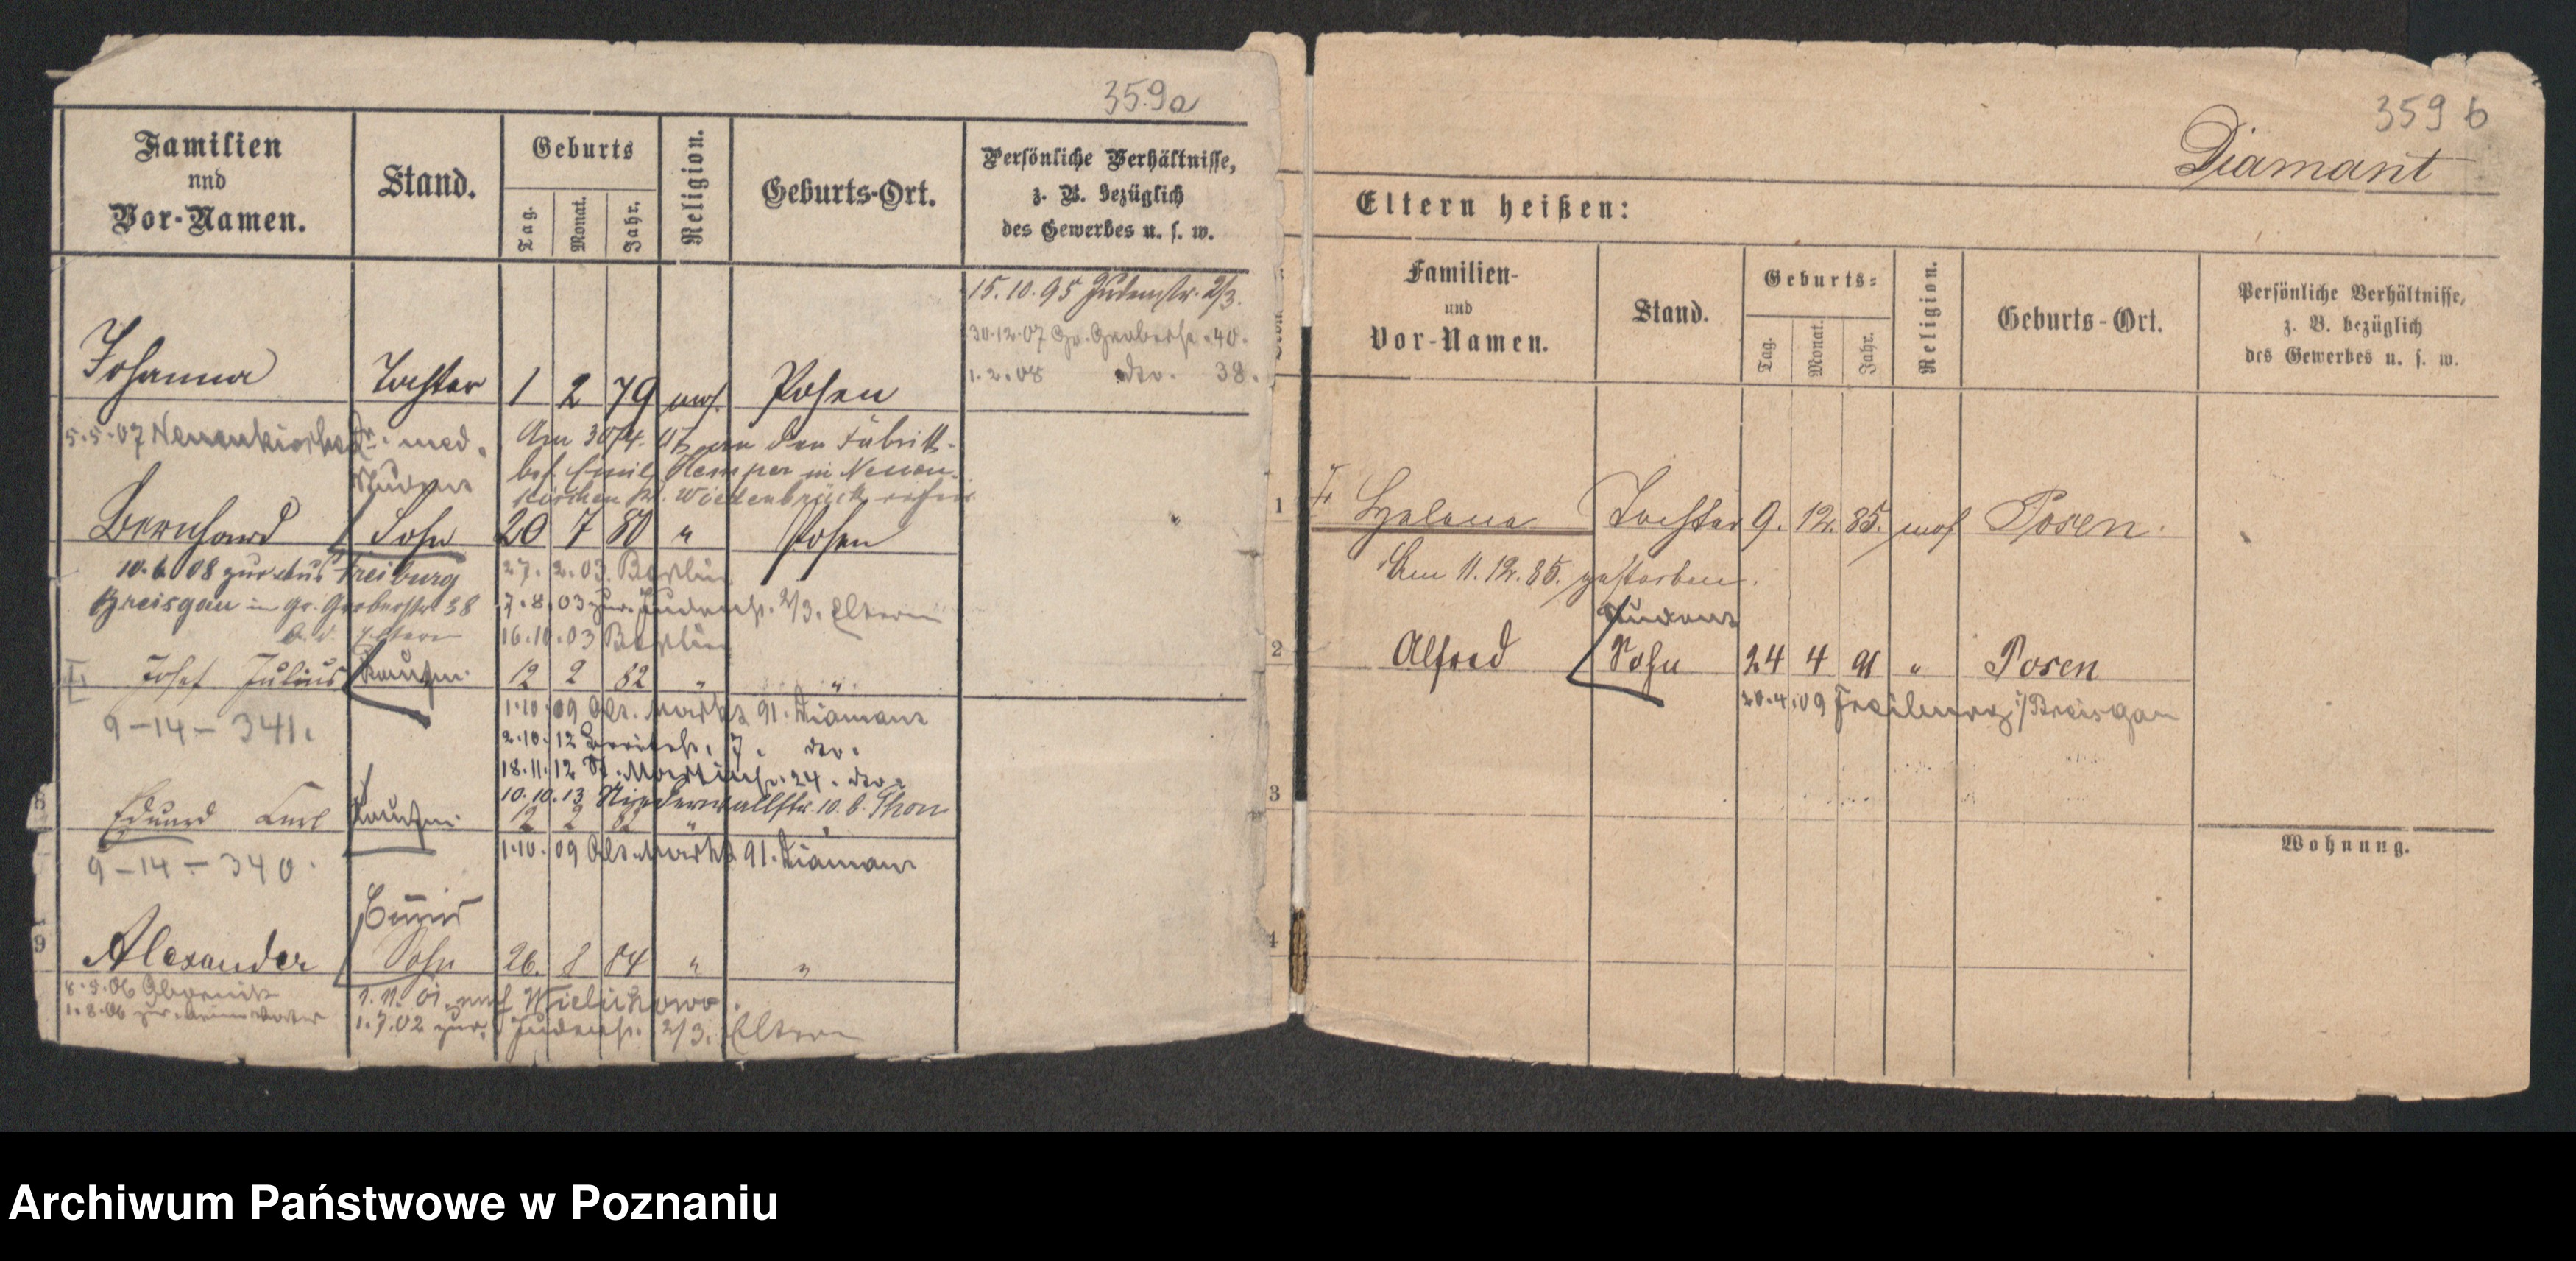 359a
Familien
und
Vor-Namen.
Stand.
Geburts
Tag.
Monat.
Jahr.
Religion.
Geburts-Ort.
Persönliche Verhältnisse,
z. B. bezüglich
des Gewerbes u. s. w.
15.10.95 Judenstr. 2/3.
30.12.07 Gr. Gerberstr. 40.
1.2.08 do. 38.
Johanna Tochter 1 2 79 mos. Posen
5.5.07 Neuenkirchen Dr. med.
Am 30/4. 07 an den Fabrik-
bes. Emil Kemper in Neuen-
kirchen Kr. Wiedenbrück
Student
Bernhard Sohn 20 7 80 " Posen
10.6.08 zur aus Freiburg
Breisgau in Gr. Gerberstr. 38
b. d. Eltern
27.2.03. Berlin
7.8.03 zur. Judenstr. 2/3. Eltern
16.10.03 Berlin
Josef Julius Kaufm. 12 2 82 " "
9-14-341.
1.10.09 Alt. Markt 91. Diamant
2.10.12 Breitestr. 7. do.
18.11.12 St. Martinstr. 24. do.
10.10.13 Niederwallstr. 10. b. Thon
Eduard Carl Kaufm. 12 2 82 "
9-14-340.
1.10.09 Alt. Markt 91. Diamant
9
Alexander Sohn 26. 8 84 " "
8.5.06 Obornik
1.8.06 zur.
1.11.01. nach Wielichowo.
1.7.02 zur. Judenstr. 2/3. Eltern
359 b
Diamant
Eltern heißen:
Familien-
und
Vor-Namen.
Stand.
Geburts-
Tag.
Monat.
Jahr.
Religion.
Geburts-Ort.
Persönliche Verhältnisse,
z. B. bezüglich
des Gewerbes u. s. w.
1 Helene Tochter 9. 12. 85. mos Posen.
Am 11.12.85. gestorben.
Student
2 Alfred Sohn 24 4 91 " Posen
20.4.09 Freiburg i/Breisgau
3
Wohnung.
4
Archiwum Państwowe w Poznaniu